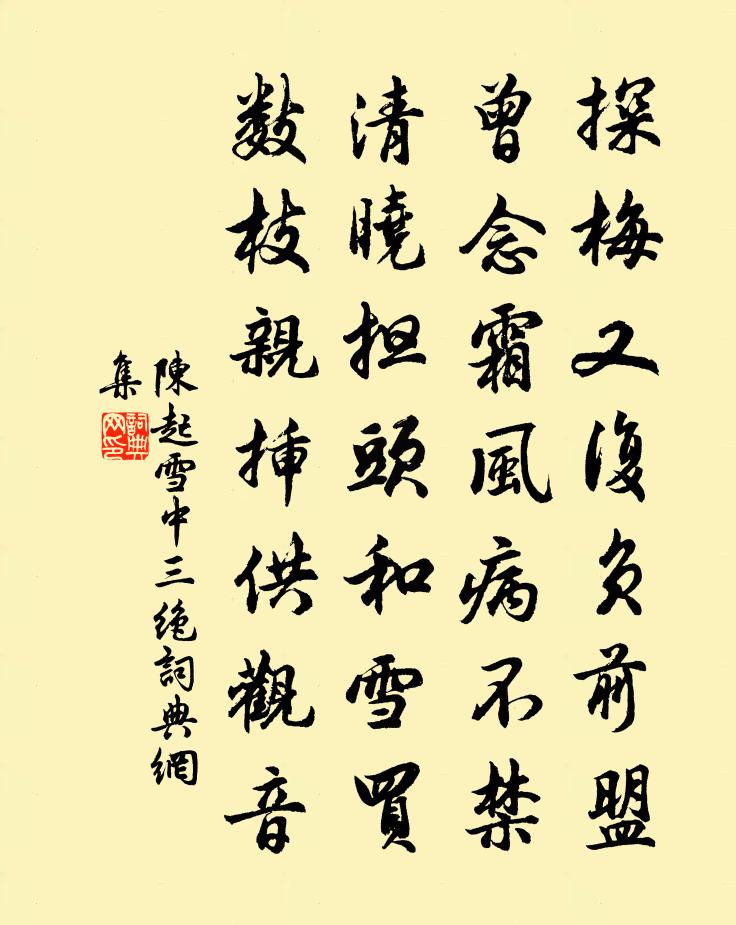 探梅又復負前盟
曾念霜風病不禁
清曉担頭和雪買
數枝親挿供觀音
陳起雪中三絶詞典網
集
詞典
网印